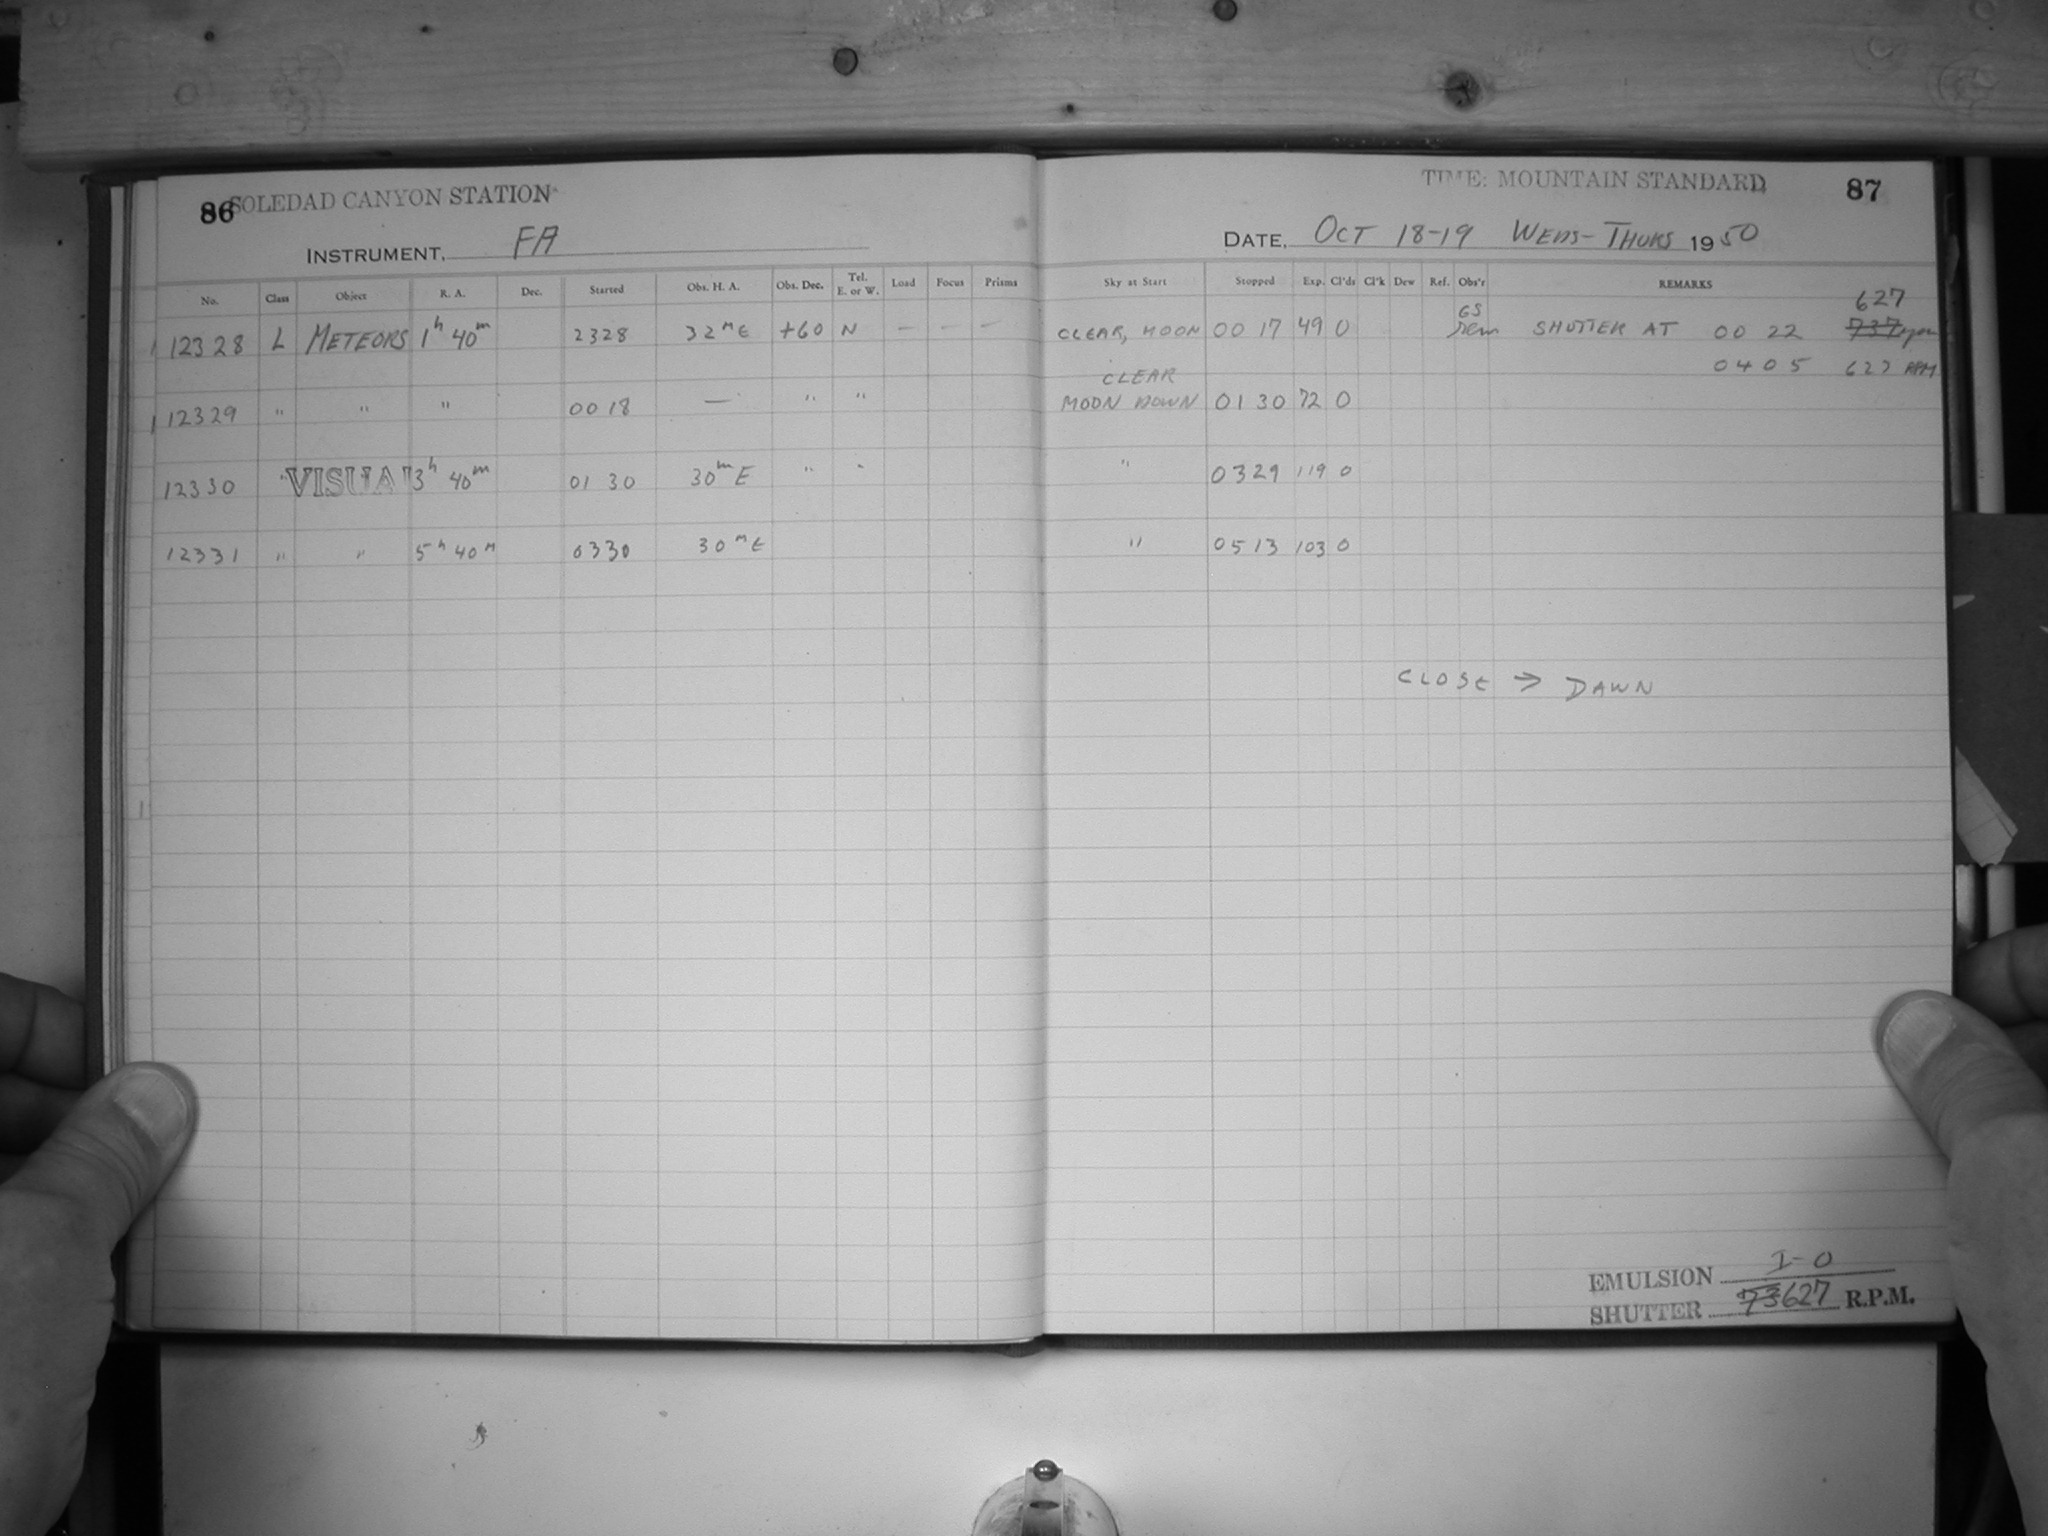 86 SOLEDAD CANYON STATION
INSTRUMENT, FA
No. Class Object R. A. Dec. Started Obs. H. A. Obs. Dec. Tel. E. or W. Load Focus Prisms
12328 L METEORS 1h 40m 2328 32mE +60 N — — —
12329 " " " 0018 — " "
12330 " VISUAL 3h 40m 01 30 30mE " "
12331 " " 5h 40m 0330 30mE
TIME: MOUNTAIN STANDARD 87
DATE, OCT 18-19 WEDS-THURS 1950
Sky at Start Stopped Exp. Cl'ds Cl'k Dew Ref. Obs'r REMARKS
GS 627
CLEAR, MOON 00 17 49 0 SHUTTER AT 00 22 737 rpm
0405 627 RPM
CLEAR
MOON DOWN 01 30 72 0
" 0329 119 0
" 0513 103 0
CLOSE → DAWN
EMULSION I-O
SHUTTER 73 627 R.P.M.